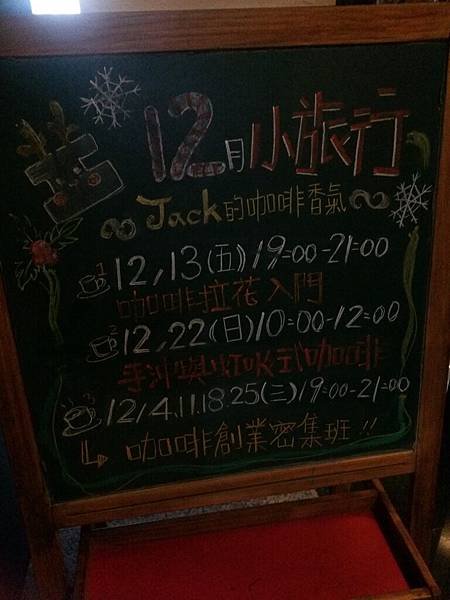 12月小旅行
Jack的咖啡香氣
1 12,13(五)19:00-21:00
咖啡拉花入門
2 12,22(日)10:00-12:00
手沖與 式咖啡
3 12/4.11.18.25(三)19:00-21:00
咖啡創業密集班!!